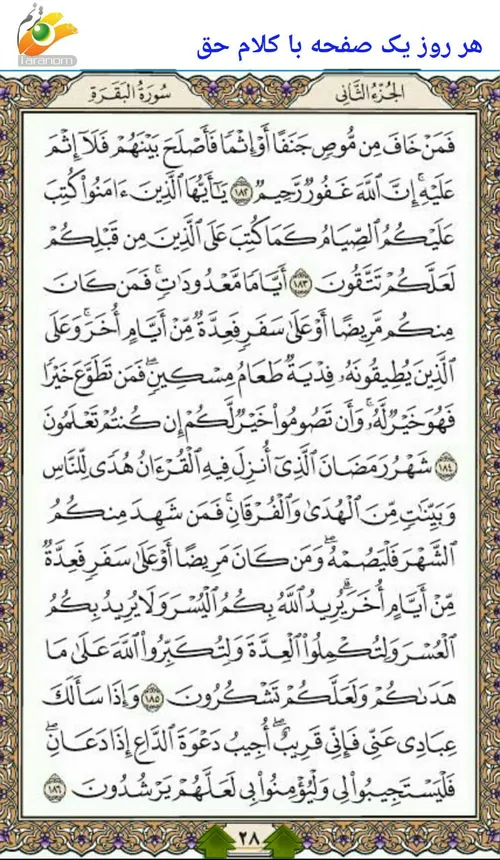 هر روز یک صفحه با کلام حق
ترنم
Taranom
الجُزْءُ الثَّانِي
سُورَةُ الْبَقَرَةِ
فَمَنْ خَافَ مِن مُّوصٍ جَنَفًا أَوْ إِثْمًا فَأَصْلَحَ بَيْنَهُمْ فَلَآ إِثْمَ
عَلَيْهِ ۚ إِنَّ ٱللَّهَ غَفُورٌ رَّحِيمٌ ١٨٢ يَـٰٓأَيُّهَا ٱلَّذِينَ ءَامَنُوا۟ كُتِبَ
عَلَيْكُمُ ٱلصِّيَامُ كَمَا كُتِبَ عَلَى ٱلَّذِينَ مِن قَبْلِكُمْ
لَعَلَّكُمْ تَتَّقُونَ ١٨٣ أَيَّامًا مَّعْدُودَٰتٍ ۚ فَمَن كَانَ
مِنكُم مَّرِيضًا أَوْ عَلَىٰ سَفَرٍ فَعِدَّةٌ مِّنْ أَيَّامٍ أُخَرَ ۚ وَعَلَى
ٱلَّذِينَ يُطِيقُونَهُۥ فِدْيَةٌ طَعَامُ مِسْكِينٍ ۖ فَمَن تَطَوَّعَ خَيْرًا
فَهُوَ خَيْرٌ لَّهُۥ ۚ وَأَن تَصُومُوا۟ خَيْرٌ لَّكُمْ إِن كُنتُمْ تَعْلَمُونَ
١٨٤ شَهْرُ رَمَضَانَ ٱلَّذِىٓ أُنزِلَ فِيهِ ٱلْقُرْءَانُ هُدًى لِّلنَّاسِ
وَبَيِّنَـٰتٍ مِّنَ ٱلْهُدَىٰ وَٱلْفُرْقَانِ ۚ فَمَن شَهِدَ مِنكُمُ
ٱلشَّهْرَ فَلْيَصُمْهُ ۖ وَمَن كَانَ مَرِيضًا أَوْ عَلَىٰ سَفَرٍ فَعِدَّةٌ
مِّنْ أَيَّامٍ أُخَرَ ۗ يُرِيدُ ٱللَّهُ بِكُمُ ٱلْيُسْرَ وَلَا يُرِيدُ بِكُمُ
ٱلْعُسْرَ وَلِتُكْمِلُوا۟ ٱلْعِدَّةَ وَلِتُكَبِّرُوا۟ ٱللَّهَ عَلَىٰ مَا
هَدَىٰكُمْ وَلَعَلَّكُمْ تَشْكُرُونَ ١٨٥ وَإِذَا سَأَلَكَ
عِبَادِى عَنِّى فَإِنِّى قَرِيبٌ ۖ أُجِيبُ دَعْوَةَ ٱلدَّاعِ إِذَا دَعَانِ ۖ
فَلْيَسْتَجِيبُوا۟ لِى وَلْيُؤْمِنُوا۟ بِى لَعَلَّهُمْ يَرْشُدُونَ ١٨٦
٢٨